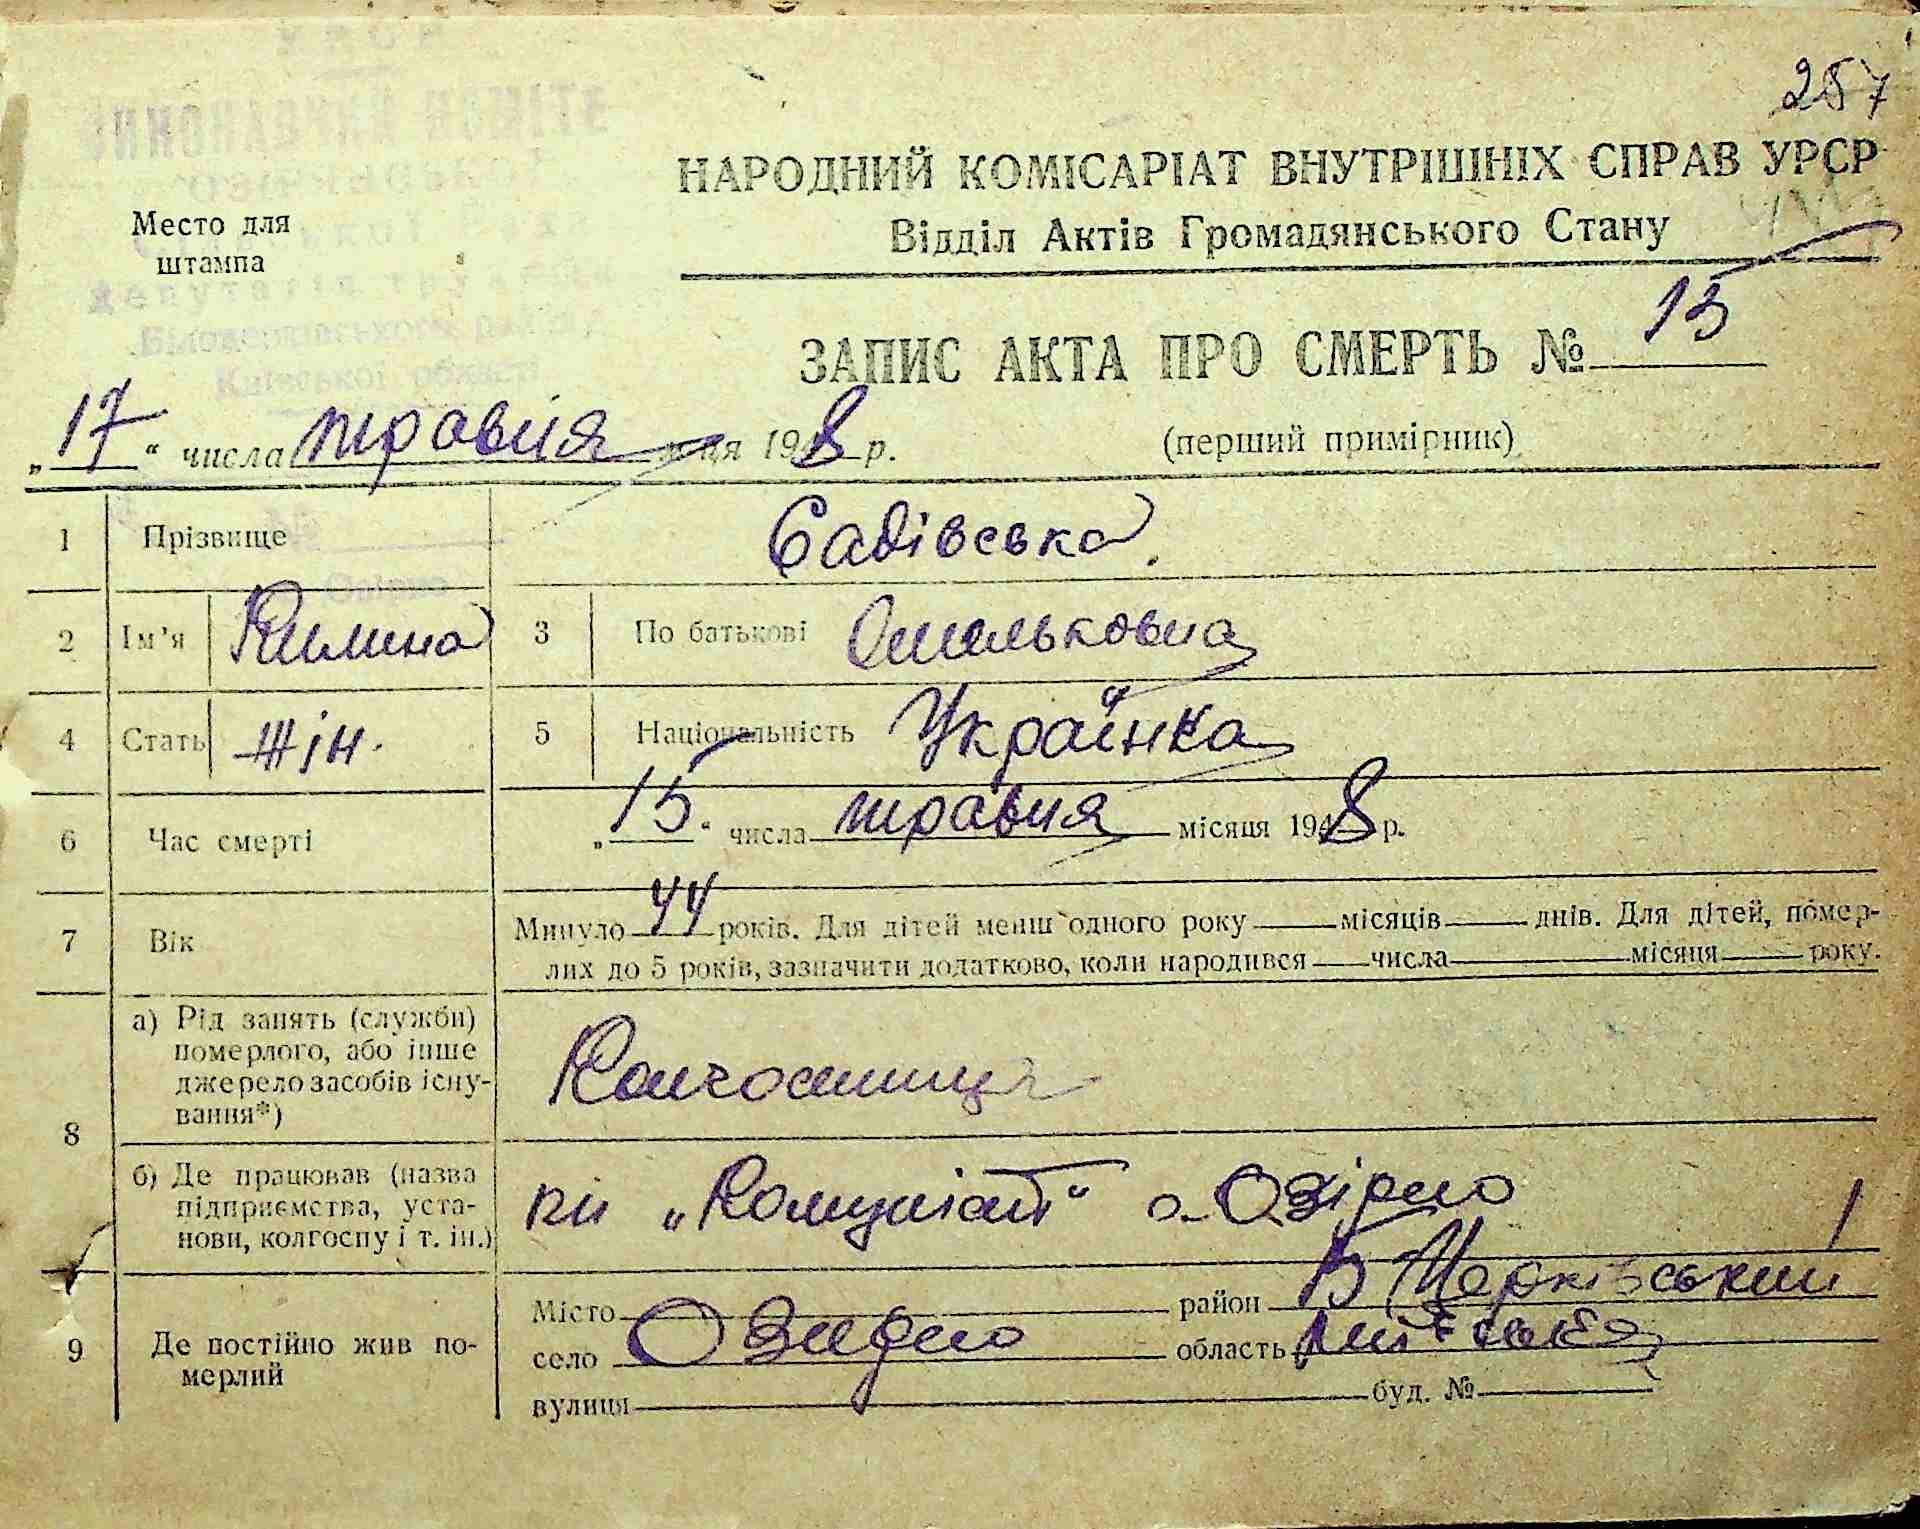 257
НАРОДНИЙ КОМІСАРІАТ ВНУТРІШНІХ СПРАВ УРСР
Відділ Актів Громадянського Стану
Место для
штампа
депутатів трудящих
Білоцерківського району
Київської області
ЗАПИС АКТА ПРО СМЕРТЬ № 15
„17“ числа травня м-ця 1948 р. (перший примірник)
1 Прізвище Садівська
2 Ім’я Килина 3 По батькові Омельковна
4 Стать жін. 5 Національність Українка
6 Час смерті „15“ числа травня місяця 1948 р.
7 Вік Минуло 44 років. Для дітей менш одного року — місяців — днів. Для дітей, помер-
лих до 5 років, зазначити додатково, коли народився — числа — місяця — року.
8 а) Рід занять (служби)
померлого, або інше
джерело засобів існу-
вання*)
Колгоспниця
б) Де працював (назва
підприємства, уста-
нови, колгоспу і т. ін.)
„Комуніст“ с. Озірно
9 Де постійно жив по-
мерлий
Місто район Б Церківський
село Озирно область Київська
вулиця буд. №